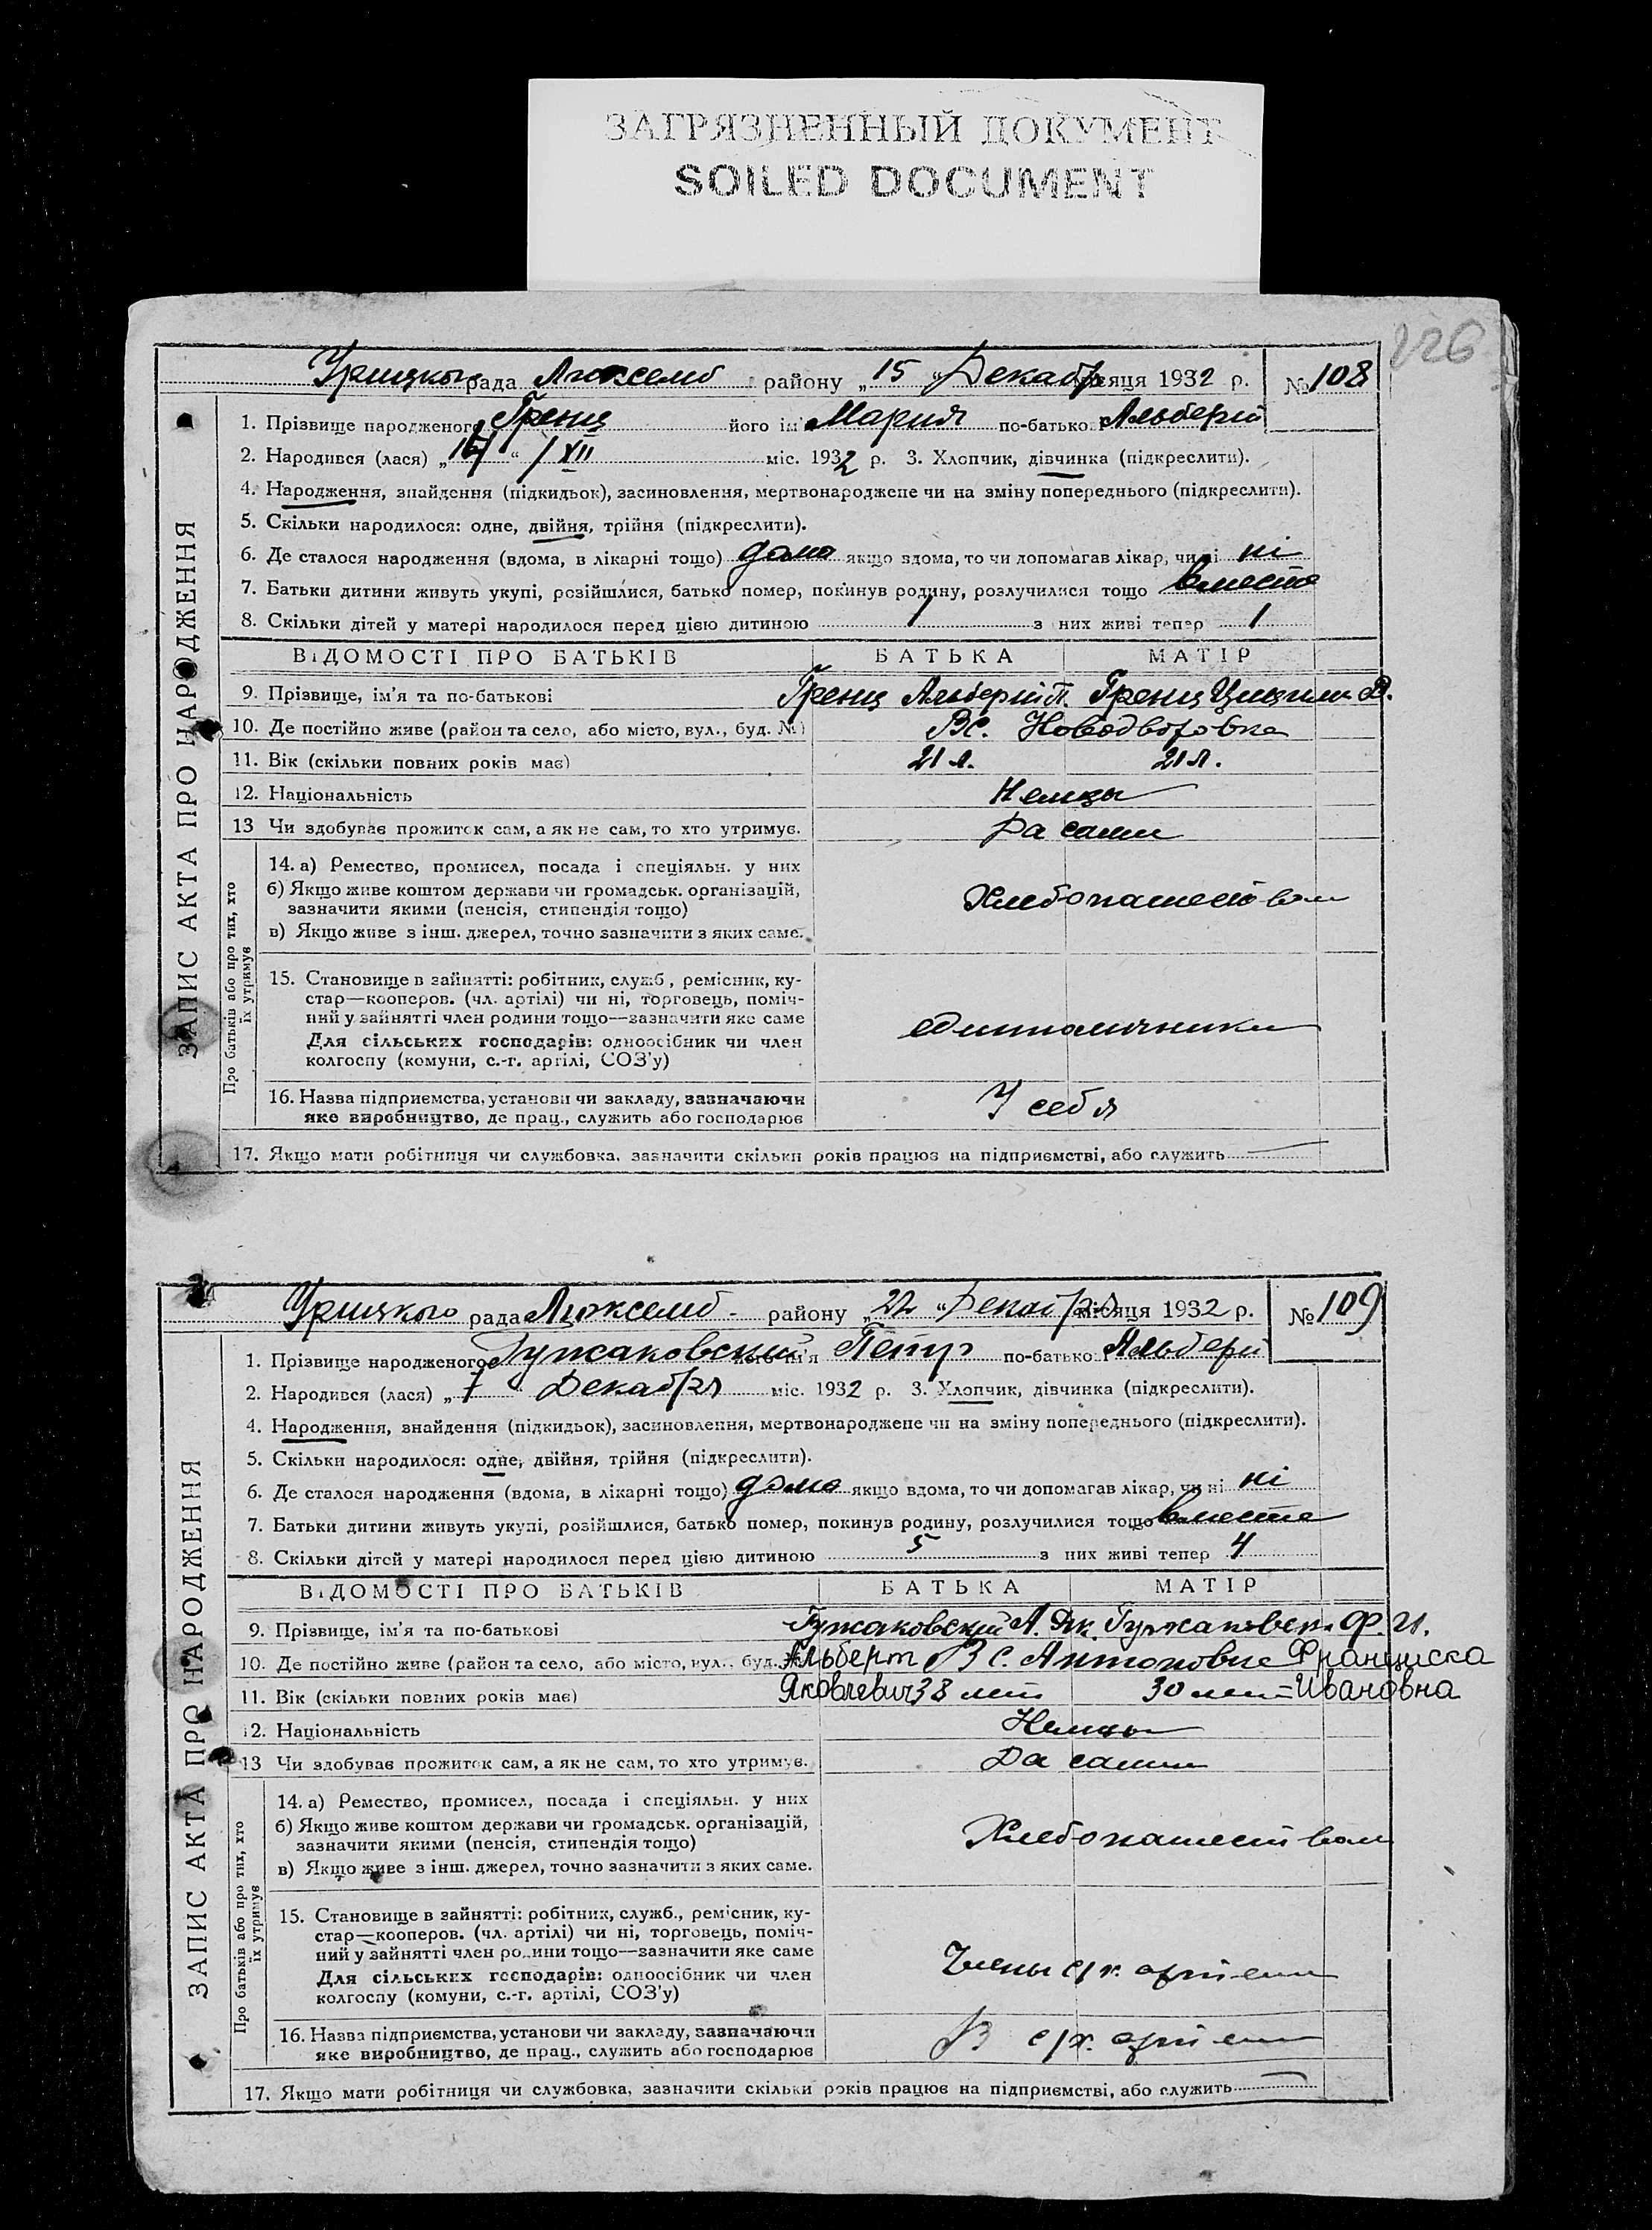 ЗАГРЯЗНЕННЫЙ ДОКУМЕНТ
SOILED DOCUMENT
226
Урицького рада Люксемб району „15“ Декабр місяця 1932 р. № 108
1. Прізвище народженого Гренц його ім'я Мария по-батькові Альберті
2. Народився (лася) „14“ / XII міс. 1932 р. 3. Хлопчик, дівчинка (підкреслити).
4. Народження, знайдення (підкидьок), засиновлення, мертвонароджене чи на зміну попереднього (підкреслити).
5. Скільки народилося: одне, двійня, трійня (підкреслити).
6. Де сталося народження (вдома, в лікарні тощо) дома якщо вдома, то чи допомагав лікар, чи ні ні
7. Батьки дитини живуть укупі, розійшлися, батько помер, покинув родину, розлучилися тощо вместе
8. Скільки дітей у матері народилося перед цією дитиною 1 з них живі тепер 1
ВІДОМОСТІ ПРО БАТЬКІВ БАТЬКА МАТІР
9. Прізвище, ім'я та по-батькові Гренц Альберт П. Гренц
10. Де постійно живе (район та село, або місто, вул., буд. №) В с. Новодворовка
11. Вік (скільки повних років має) 21 л. 21 л.
12. Національність Немцы
13 Чи здобуває прожиток сам, а як не сам, то хто утримує. Да сами
14. а) Ремество, промисел, посада і спеціяльн. у них
б) Якщо живе коштом держави чи громадськ. організацій,
зазначити якими (пенсія, стипендія тощо)
Хлебопашеством
в) Якщо живе з інш. джерел, точно зазначити з яких саме.
15. Становище в зайнятті: робітник, служб., ремісник, ку-
стар—кооперов. (чл. артілі) чи ні, торговець, поміч-
ний у зайнятті член родини тощо—зазначити яке саме
единоличники
Для сільських господарів: одноосібник чи член
колгоспу (комуни, с.-г. артілі, СОЗ'у)
16. Назва підприємства, установи чи закладу, зазначаючи
яке виробництво, де прац., служить або господарює
У себя
17. Якщо мати робітниця чи службовка, зазначити скільки років працює на підприємстві, або служить
Про батьків або про тих, хто
їх утримує
ЗАПИС АКТА ПРО НАРОДЖЕННЯ
Урицького рада Люксемб - району „22“ Декабря місяця 1932 р. № 109
1. Прізвище народженого Гужаковский його ім'я Петр по-батькові Альберті
2. Народився (лася) „7 Декабря міс. 1932 р. 3. Хлопчик, дівчинка (підкреслити).
4. Народження, знайдення (підкидьок), засиновлення, мертвонароджене чи на зміну попереднього (підкреслити).
5. Скільки народилося: одне, двійня, трійня (підкреслити).
6. Де сталося народження (вдома, в лікарні тощо) дома якщо вдома, то чи допомагав лікар, чи ні ні
7. Батьки дитини живуть укупі, розійшлися, батько помер, покинув родину, розлучилися тощо вместе
8. Скільки дітей у матері народилося перед цією дитиною 5 з них живі тепер 4
ВІДОМОСТІ ПРО БАТЬКІВ БАТЬКА МАТІР
9. Прізвище, ім'я та по-батькові Гужаковский А. Як. Гужаковск. Ф. И.
10. Де постійно живе (район та село, або місто, вул., буд. Альберт В с. Антоновке Франциска
11. Вік (скільки повних років має) Яковлевич 38 лет 30 лет Ивановна
12. Національність Немцы
13 Чи здобуває прожиток сам, а як не сам, то хто утримує. Да сами
14. а) Ремество, промисел, посада і спеціяльн. у них
б) Якщо живе коштом держави чи громадськ. організацій,
зазначити якими (пенсія, стипендія тощо)
Хлебопашеством
в) Якщо живе з інш. джерел, точно зазначити з яких саме.
15. Становище в зайнятті: робітник, служб., ремісник, ку-
стар—кооперов. (чл. артілі) чи ні, торговець, поміч-
ний у зайнятті член родини тощо—зазначити яке саме
Члены с/х. артели
Для сільських господарів: одноосібник чи член
колгоспу (комуни, с.-г. артілі, СОЗ'у)
16. Назва підприємства, установи чи закладу, зазначаючи
яке виробництво, де прац., служить або господарює
В с/х. артели
17. Якщо мати робітниця чи службовка, зазначити скільки років працює на підприємстві, або служить
Про батьків або про тих, хто
їх утримує
ЗАПИС АКТА ПРО НАРОДЖЕННЯ